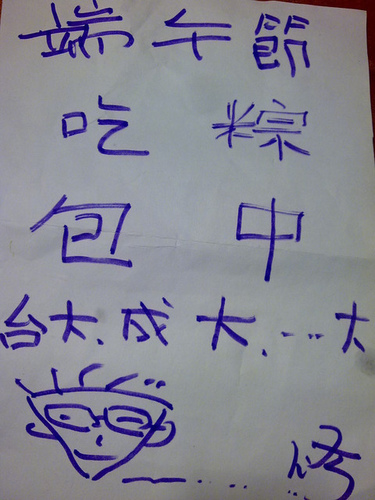 端午節
吃粽
包中
台大.成大....大